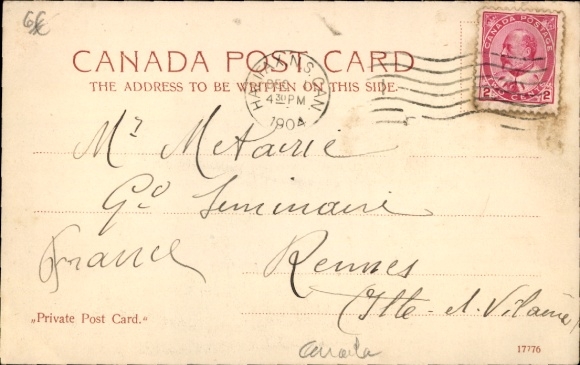 6€
CANADA POST CARD
THE ADDRESS TO BE WRITTEN ON THIS SIDE.
CANADA POSTAGE
2 TWO CENTS 2
HALIFAX N.S. CAN.
4 30 PM
1904
Mr Métairie
Gd Seminaire
France
Rennes
(Ille-et-Vilaine)
„Private Post Card.“
Canada
17776